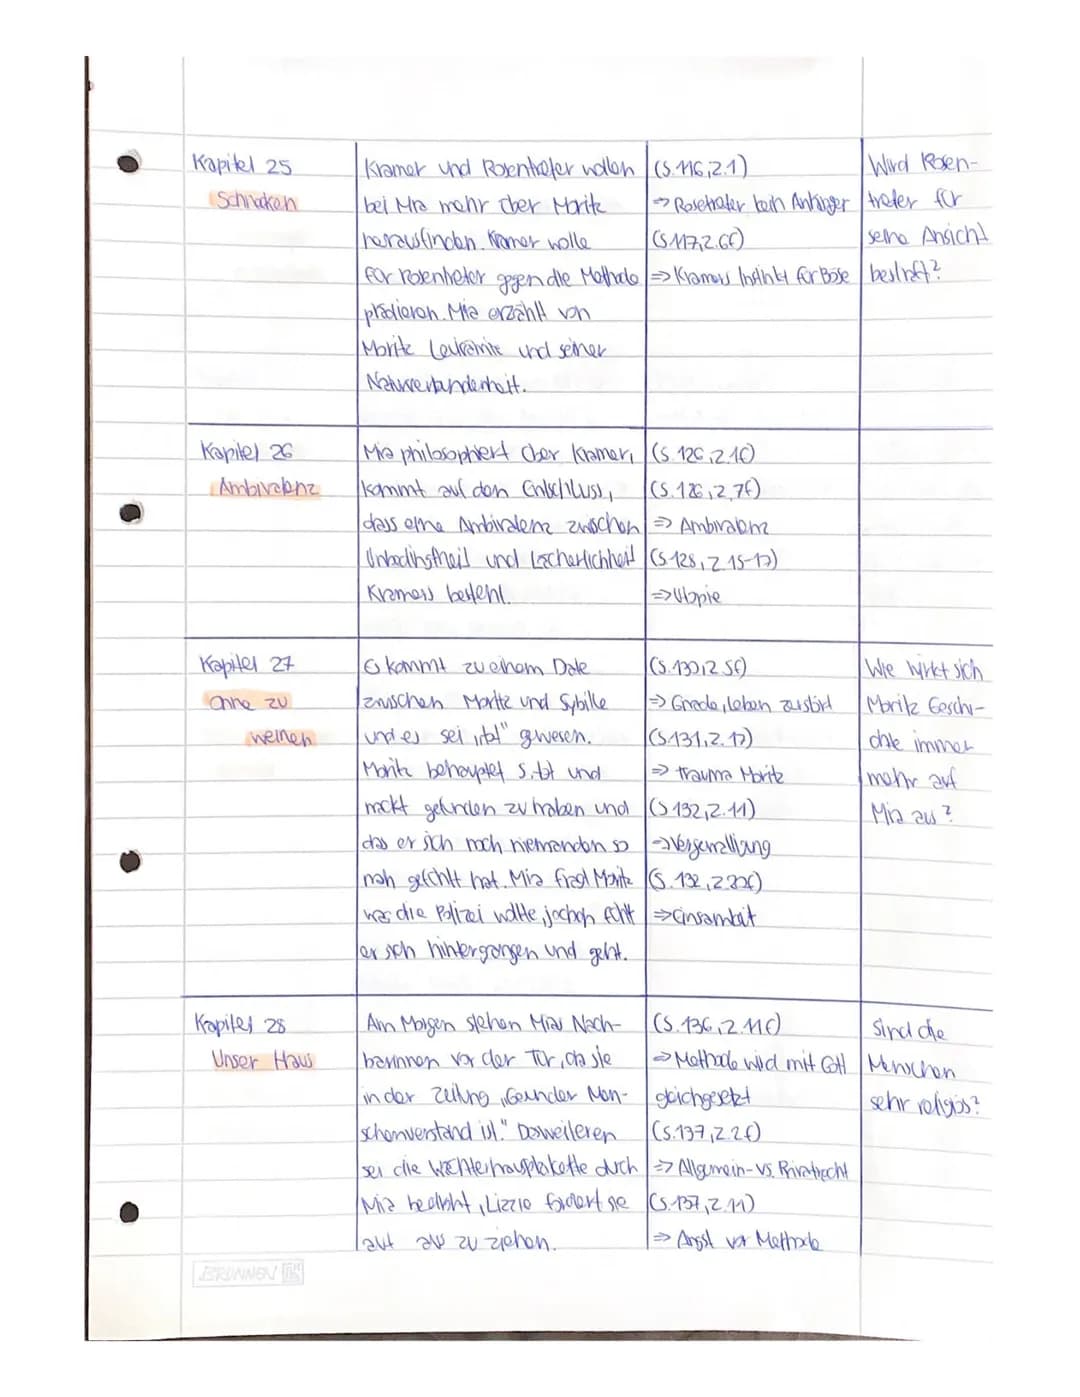 Kapitel 25
Schnaken
Kramer und Rosentreter wollen
bei Mia mehr über Moritz
herausfinden. Kramer wolle
für Rosentreter gegen die Methode
plädieren. Mia erzählt von
Moritz Leukämie und seiner
Naturverbundenheit.
(S.116, Z.1)
=> Rosetreter kein Anhänger
(S.117, Z.6f)
=> Kramers Instinkt für Böse
Wird Rosen-
treter für
seine Ansicht
bestraft?
Kapitel 26
Ambivalenz
Mia philosophiert über Kramer,
kommt auf den Entschluss,
dass eine Ambivalenz zwischen
Unbedingtheit und Lächerlichkeit
Kramers besteht.
(S.126, Z.1f)
(S.126, Z.7f)
=> Ambivalenz
(S.128, Z.15-17)
=> Utopie
Kapitel 27
Ohne zu
weinen
Es kommt zu einem Date
zwischen Moritz und Sybille
und es sei „tot" gewesen.
Moritz behauptet S. tot und
nackt gefunden zu haben und
das er sich noch niemanden so
nah gefühlt hat. Mia fragt Moritz
was die Polizei wollte, jedoch fühlt
er sich hintergangen und geht.
(S.130, Z.5f)
=> Gnade, leben zustört
(S.131, Z.17)
=> trauma Moritz
(S.132, Z.11)
=> Vergewaltigung
=> Einsamkeit
Wie wirkt sich
Moritz Geschi-
chte immer
mehr auf
Mia aus?
Kapitel 28
Unser Haus
Am Morgen stehen Mias Nach-
barinnen vor der Tür, da sie
in der Zeitung „Gesunder Men-
schenverstand ist." Desweiteren
sei die Wächterhausplakette durch
Mia bedroht, Lizzie fordert sie
auf aus zu ziehen.
(S.136, Z.11f)
=> Methode wird mit Gott
gleichgesetzt
(S.137, Z.2f)
=> Allgemein- vs. Privatrecht
(S.137, Z.11)
=> Angst vor Methode
Sind die
Menschen
sehr religiös?
BRUNNEN